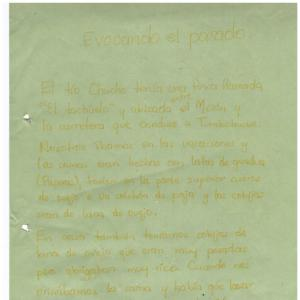 Evocando el pasado
El tío Chucho tenía una finca llamada
"El tachuelo" y ubicada entre el Mosoy y
la carretera que conduce a
Nosotros íbamos en las vacaciones y
las camas eran hechas con latas de guadua
tenían en la parte superior cueros
de oveja o un colchón de paja y las cobijas
eran de lana de ovejo.
En casa también teníamos cobijas de
lana de ovejo que eran muy pesadas
pero abrigaban muy rico. Cuando nos
la cama y había que lavar